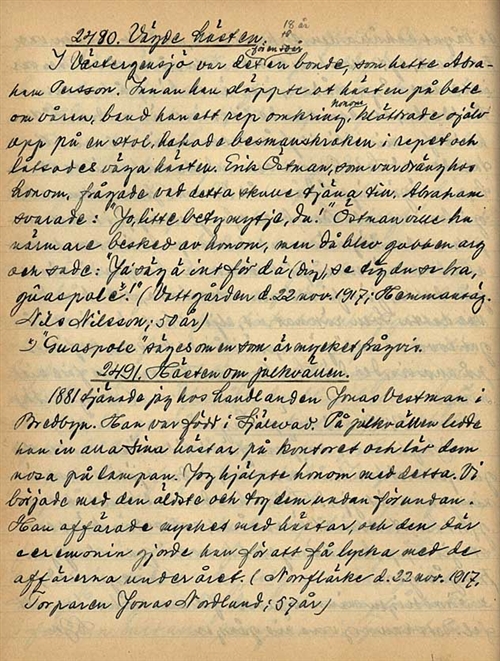 2490. Vägde hästen.
18 år
I Västergensjö var det en bonde, som hette Abra-
ham Persson. Innan han släppte ut hästen på bete
om våren, band han ett rep omkring honom, klättrade själv
upp på en stol, hakade besmanskroken i repet och
låtsades väga hästen. Erik Östman, som var dräng hos
honom, frågade vad detta skulle tjäna till. Abraham
svarade: "Jo, litte du!" Östman ville ha
närmare besked av honom, men då blev gubben arg
och sade: "Ja säg ä int för dä (dig), se bra,
guaspole¹!" ( d. 22 nov. 1917; Hemmansäg.
Nils Nilsson; 50 år)
¹) "Guaspole" säges om en som är mycket frågvis.
2491. Hästen om julkvällen.
1881 tjänade jag hos handlanden Jonas Vestman i
Bredbyn. Han var född i Själevad. På julkvällen ledde
han in alla sina hästar på kontoret och lät dem
nosa på lampan. Jag hjälpte honom med detta. Vi
började med den äldste och tog dem undan för undan.
Han affärade mycket med hästar, och den där
ceremonin gjorde han för att få lycka med de
affärerna under året. (Norrflärke d. 22 nov. 1917.
Torparen Jonas Nordlund; 57 år)